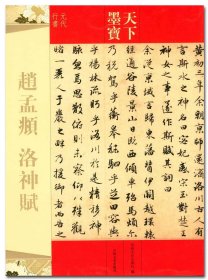 天下
墨寶
元代
行書
趙孟頫 洛神賦
黃初三年余朝京師還濟洛川古人有
言斯水之神名曰宓妃感宋玉對楚王
神女之事遂作斯賦其詞曰
余從京域言歸東藩背伊闕越轘轅
經通谷陵景山日既西傾車殆馬煩爾
乃稅駕乎蘅皋秣駟乎芝田容與
乎楊林流眄乎洛川於是精移神
駭忽焉思散俯則未察仰以殊觀
睹一麗人于巖之畔乃援御者而告之